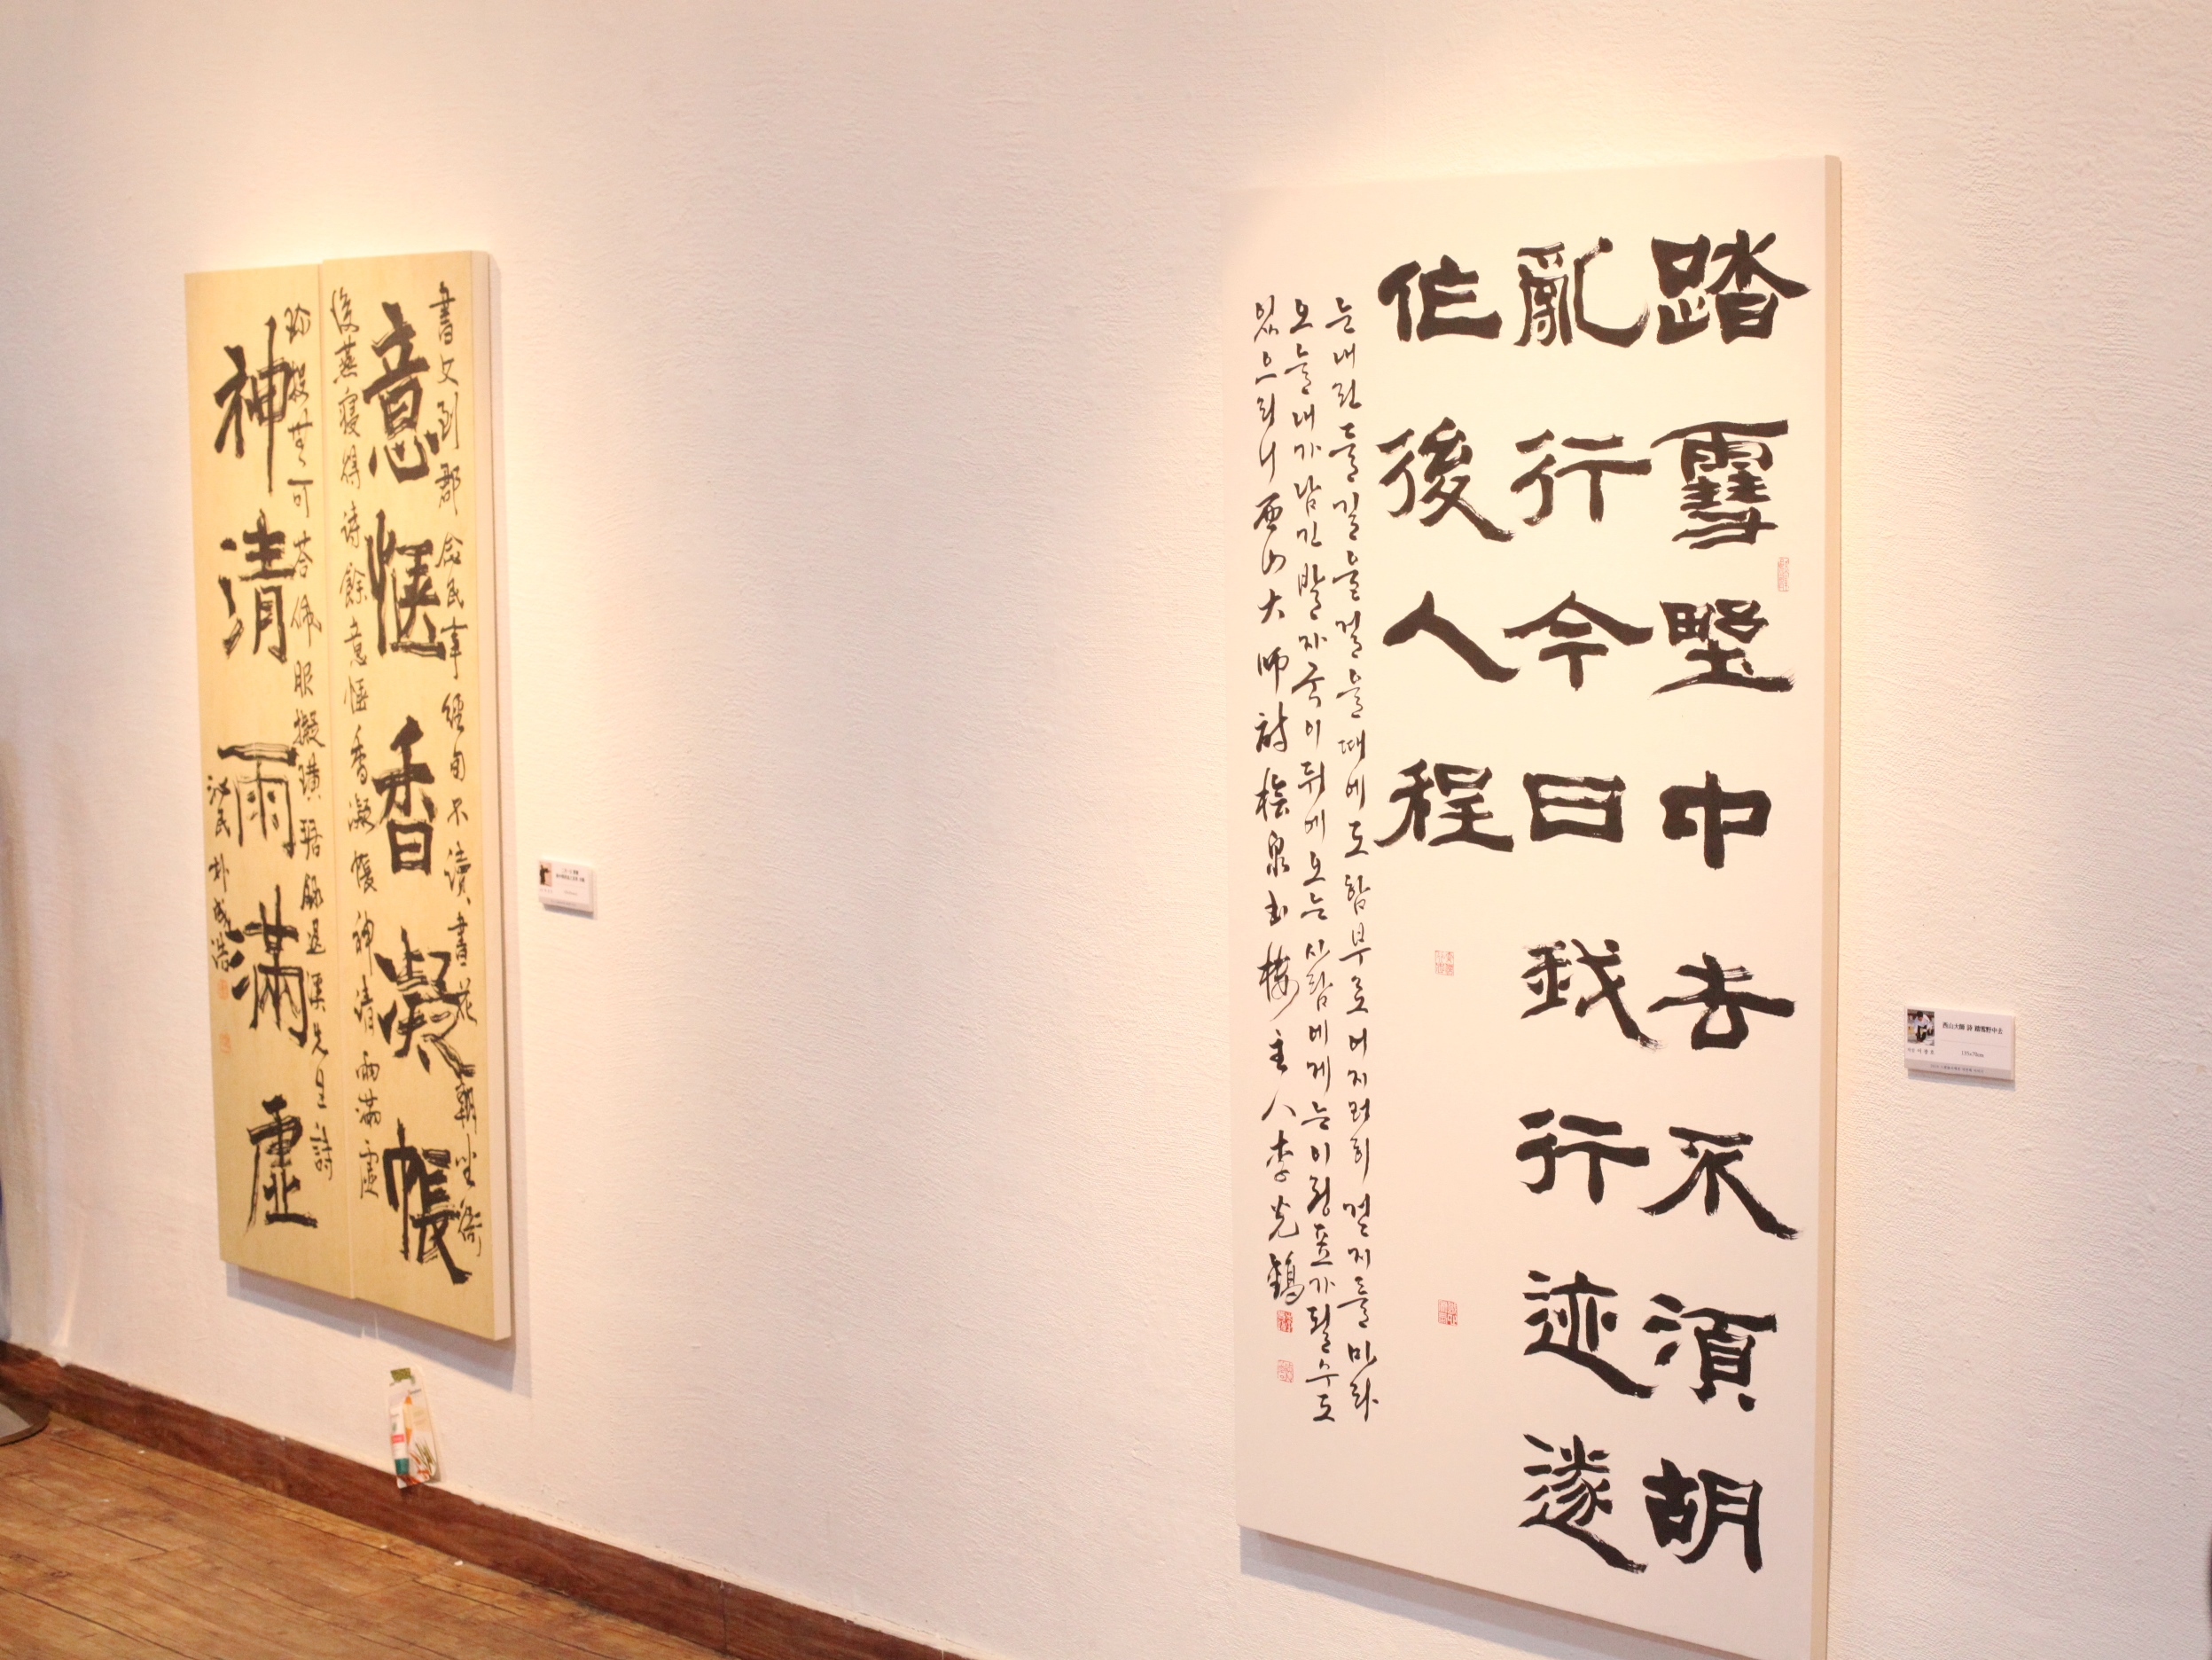 踏雪野中去不須胡
亂行今日我行迹遂
作後人程
눈내린들길을걸을때에도함부로어지러히걷지를마라
오늘내가남긴발자국이뒤에오는사람에게는이정표가될수도
있으리니西山大師詩 泉 樓主人李光鎬
西山大師 詩 踏雪野中去
135x70cm
郡 民事經旬不讀書花朝坐衙
意愜香凝帳
後燕寢得詩餘意愜香凝帳神清雨滿虛
可荅佩服擬璜琚錄退溪先生詩
神清雨滿虛
民朴成浩